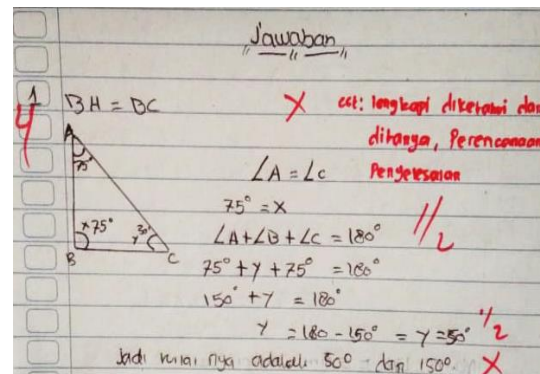 Jawaban
1 BH = BC X cat: lengkapi diketahui dan
4 ditanya, Perencanaan
Penyelesaian
A
75°
×75°
30°
Y
B
C
∠A = ∠C
75° = X
∠A + ∠B + ∠C = 180° 1/2
75° + Y + 75° = 180°
150° + Y = 180°
Y = 180 - 150° = Y = 50° 1/2
Jadi nilai nya adalah 50° dan 150° X